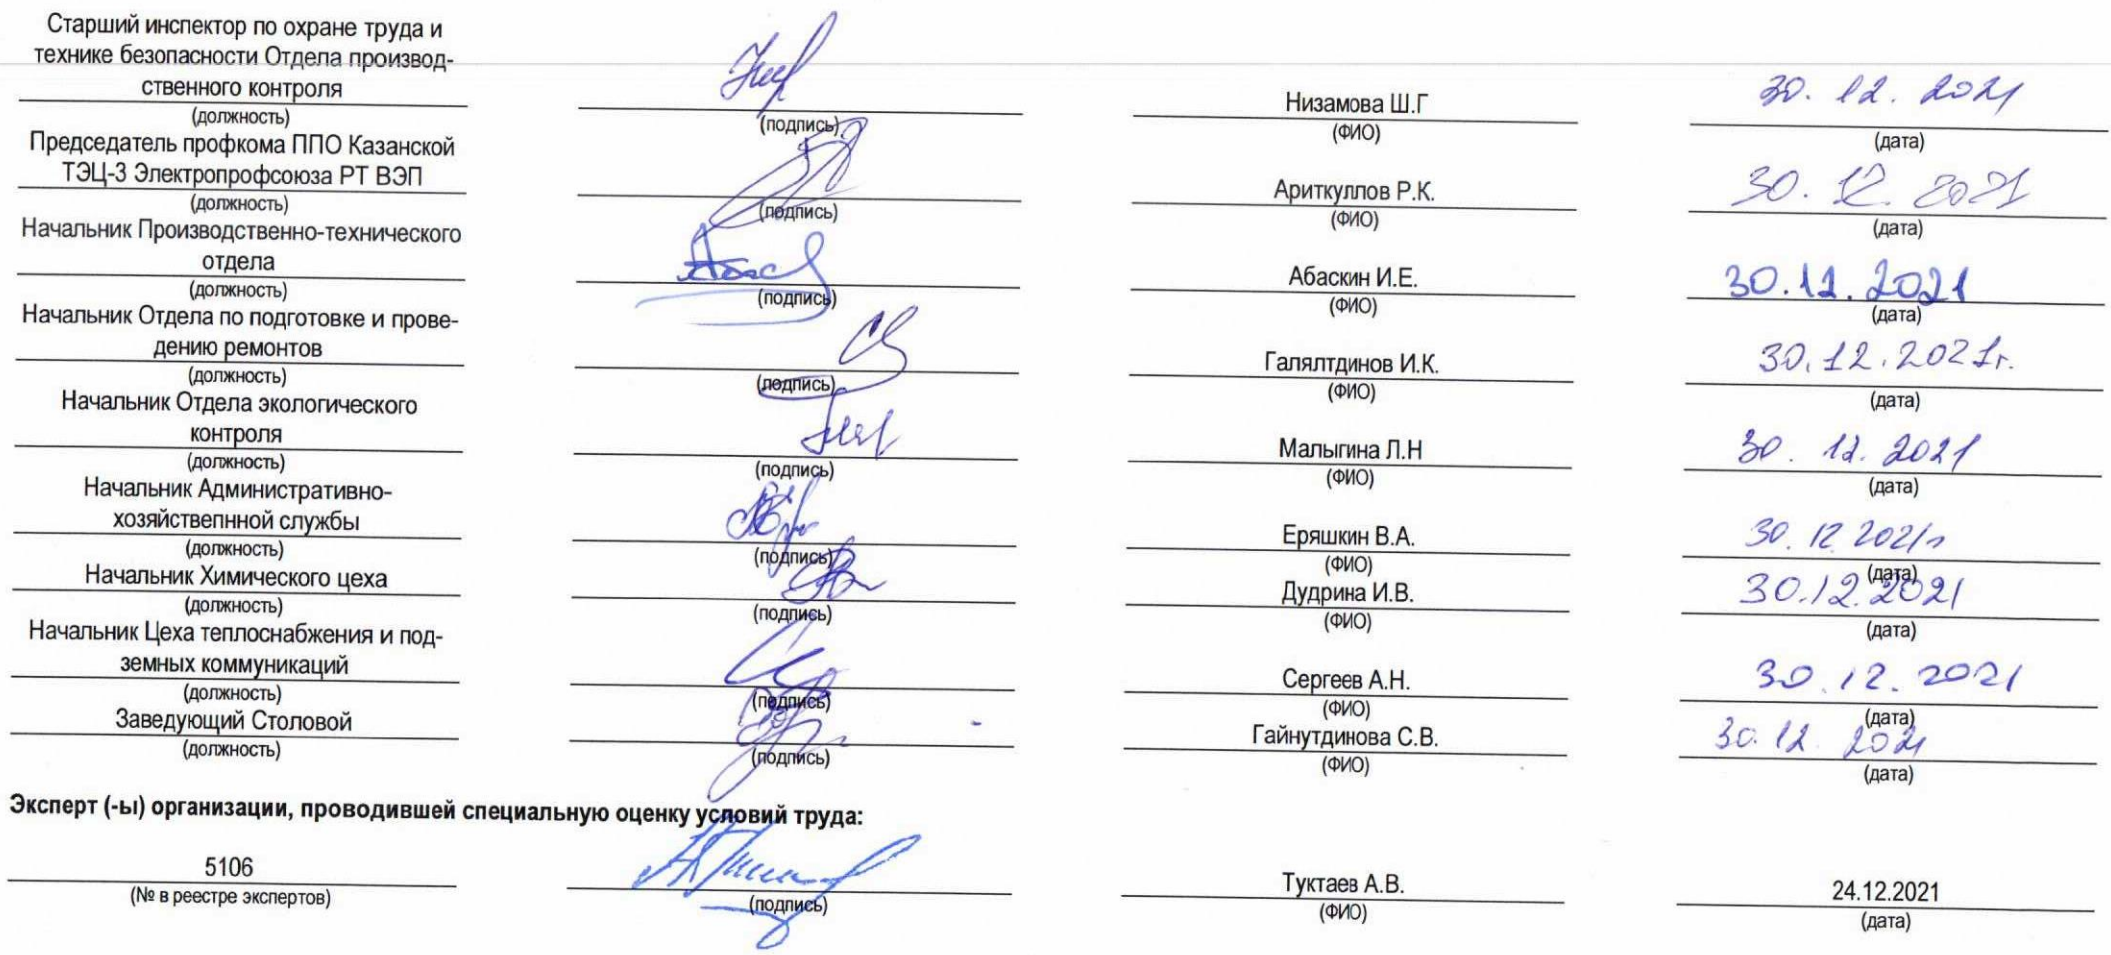 Старший инспектор по охране труда и
технике безопасности Отдела производ-
ственного контроля
Низамова Ш.Г
30.12.2021
(должность)
(подпись)
(ФИО)
(дата)
Председатель профкома ППО Казанской
ТЭЦ-3 Электропрофсоюза РТ ВЭП
Ариткуллов Р.К.
30.12.2021
(должность)
(подпись)
(ФИО)
(дата)
Начальник Производственно-технического
отдела
Абаскин И.Е.
30.12.2021
(должность)
(подпись)
(ФИО)
(дата)
Начальник Отдела по подготовке и прове-
дению ремонтов
Галялтдинов И.К.
30.12.2021г.
(должность)
(подпись)
(ФИО)
(дата)
Начальник Отдела экологического
контроля
Малыгина Л.Н
30.12.2021
(должность)
(подпись)
(ФИО)
(дата)
Начальник Административно-
хозяйствепнной службы
Еряшкин В.А.
30.12.2021г
(должность)
(подпись)
(ФИО)
(дата)
Начальник Химического цеха
Дудрина И.В.
30.12.2021
(должность)
(подпись)
(ФИО)
(дата)
Начальник Цеха теплоснабжения и под-
земных коммуникаций
Сергеев А.Н.
30.12.2021
(должность)
(подпись)
(ФИО)
(дата)
Заведующий Столовой
Гайнутдинова С.В.
30.12.2021
(должность)
(подпись)
(ФИО)
(дата)
Эксперт (-ы) организации, проводившей специальную оценку условий труда:
5106
Туктаев А.В.
24.12.2021
(№ в реестре экспертов)
(подпись)
(ФИО)
(дата)